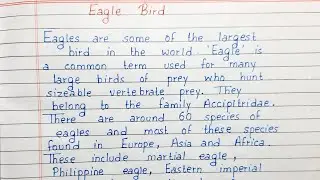 Eagle Bird
Eagles are some of the largest
bird in the world. 'Eagle' is
a common term used for many
large birds of prey who hunt
sizeable vertebrate prey. They
belong to the family Accipitridae.
There are around 60 species of
eagles and most of these species
found in Europe, Asia and Africa.
These include martial eagle,
Philippine eagle, Eastern imperial